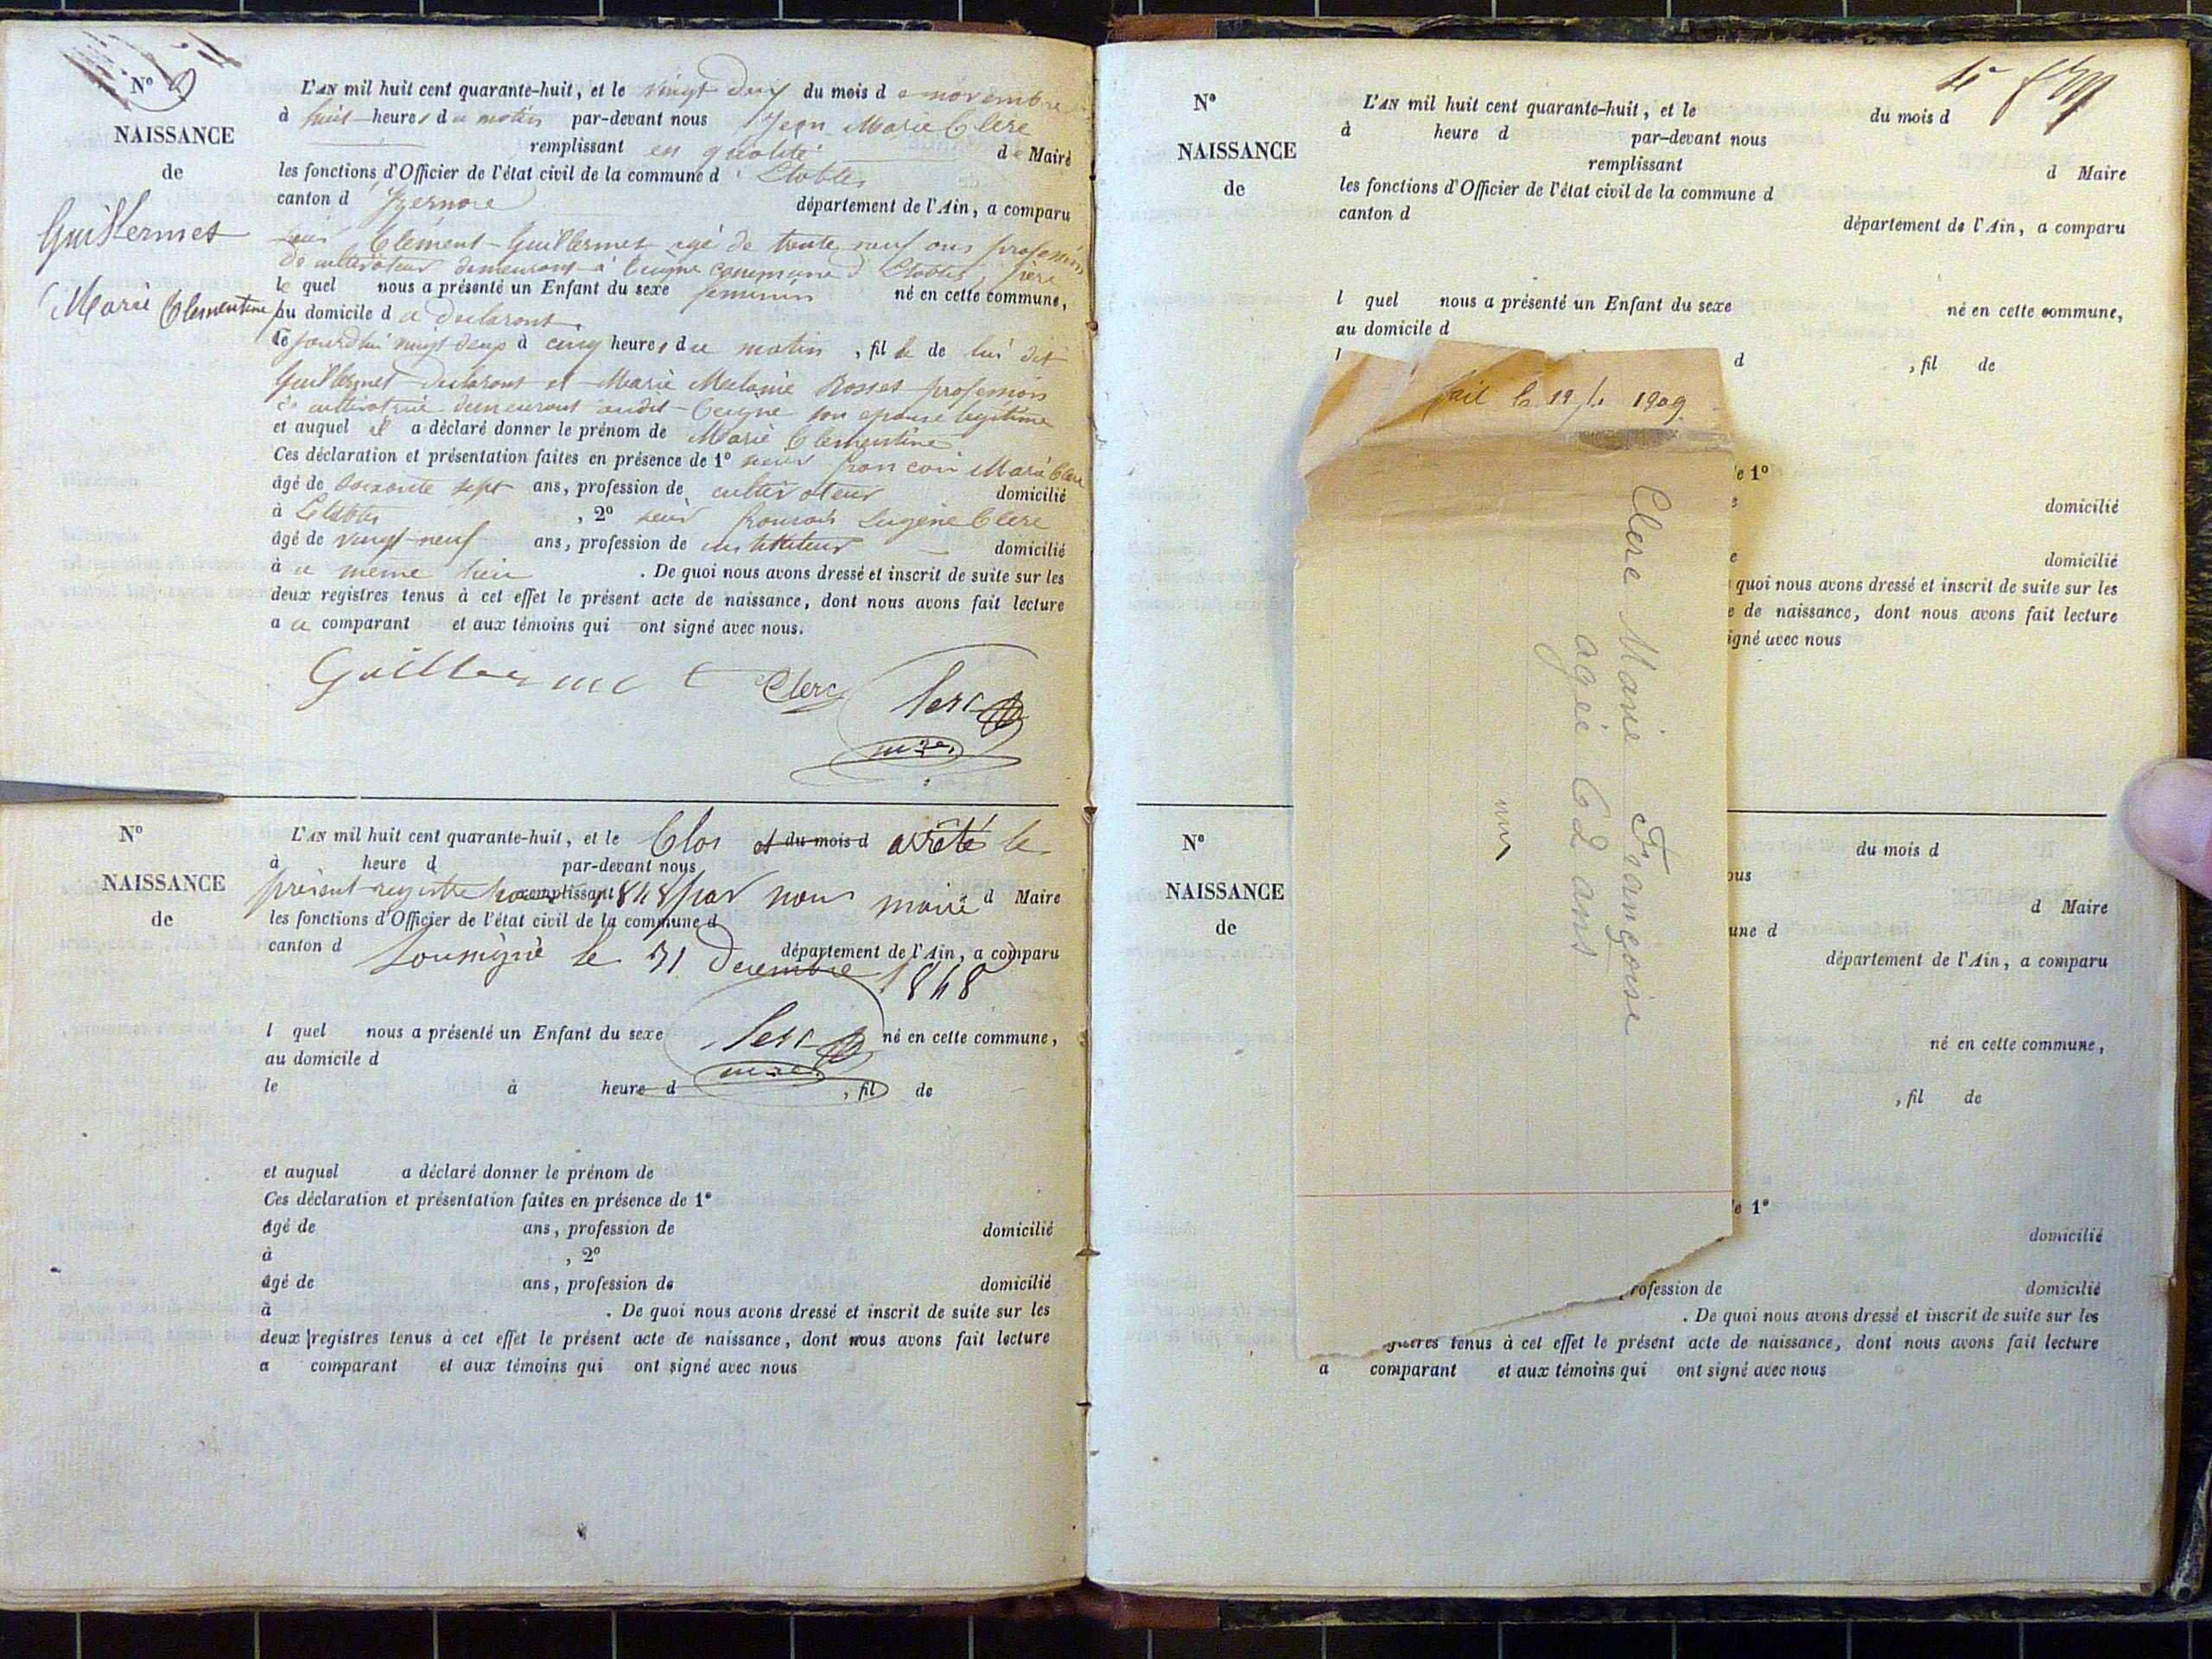 N° 9
NAISSANCE
de
Guillermet
Marie Clementine
L'AN mil huit cent quarante-huit, et le vingt deux du mois de novembre
à huit heures du matin par-devant nous Jean Marie Clerc
remplissant en qualité de Maire
les fonctions d'Officier de l'état civil de la commune d'Etables
canton d'Izernore département de l'Ain, a comparu
Clément Guillermet agé de trente neuf ans profession
de cultivateur demeurant à Ceigne commune d'Etables, père
lequel nous a présenté un Enfant du sexe feminin né en cette commune,
au domicile du declarant
Ce jourd'hui vingt deux à cinq heures du matin, fille de lui dit
Guillermet declarant et Marie Melanie Rosset profession
de cultivatrice demeurant audit Ceigne son epouse legitime
et auquel il a déclaré donner le prénom de Marie Clementine
Ces déclaration et présentation faites en présence de 1° sieur francois Marie Clerc
âgé de soixante sept ans, profession de cultivateur domicilié
à Etables, 2° sieur francois Eugène Clerc
âgé de vingt-neuf ans, profession de instituteur domicilié
à u meme lieu. De quoi nous avons dressé et inscrit de suite sur les
deux registres tenus à cet effet le présent acte de naissance, dont nous avons fait lecture
a u comparant et aux témoins qui ont signé avec nous.
Guillermet Clerc Clerc
mre
N°
NAISSANCE
de
L'AN mil huit cent quarante-huit, et le Clos et du mois d arrêté le
à heure d par-devant nous
présent registre pour remplissant 1848 par nous maire d Maire
les fonctions d'Officier de l'état civil de la commune d
canton d soussigné le 31 Decembre 1848 département de l'Ain, a comparu
l quel nous a présenté un Enfant du sexe Clerc né en cette commune,
au domicile d mre
le à heure d , fil de
et auquel a déclaré donner le prénom de
Ces déclaration et présentation faites en présence de 1°
âgé de ans, profession de domicilié
à , 2°
âgé de ans, profession de domicilié
à . De quoi nous avons dressé et inscrit de suite sur les
deux registres tenus à cet effet le présent acte de naissance, dont nous avons fait lecture
a comparant et aux témoins qui ont signé avec nous
N°
NAISSANCE
de
L'AN mil huit cent quarante-huit, et le du mois d
à heure d par-devant nous
remplissant d Maire
les fonctions d'Officier de l'état civil de la commune d
canton d département de l'Ain, a comparu
l quel nous a présenté un Enfant du sexe né en cette commune,
au domicile d
l d , fil de
e 1°
domicilié
e domicilié
quoi nous avons dressé et inscrit de suite sur les
e de naissance, dont nous avons fait lecture
igné avec nous
fait le 19/1 1909
Clerc Marie Françoise
agée 62 ans
N°
NAISSANCE
de
du mois d
ous
d Maire
une d
département de l'Ain, a comparu
né en cette commune,
, fil de
e 1°
domicilié
rofession de domicilié
. De quoi nous avons dressé et inscrit de suite sur les
gistres tenus à cet effet le présent acte de naissance, dont nous avons fait lecture
a comparant et aux témoins qui ont signé avec nous